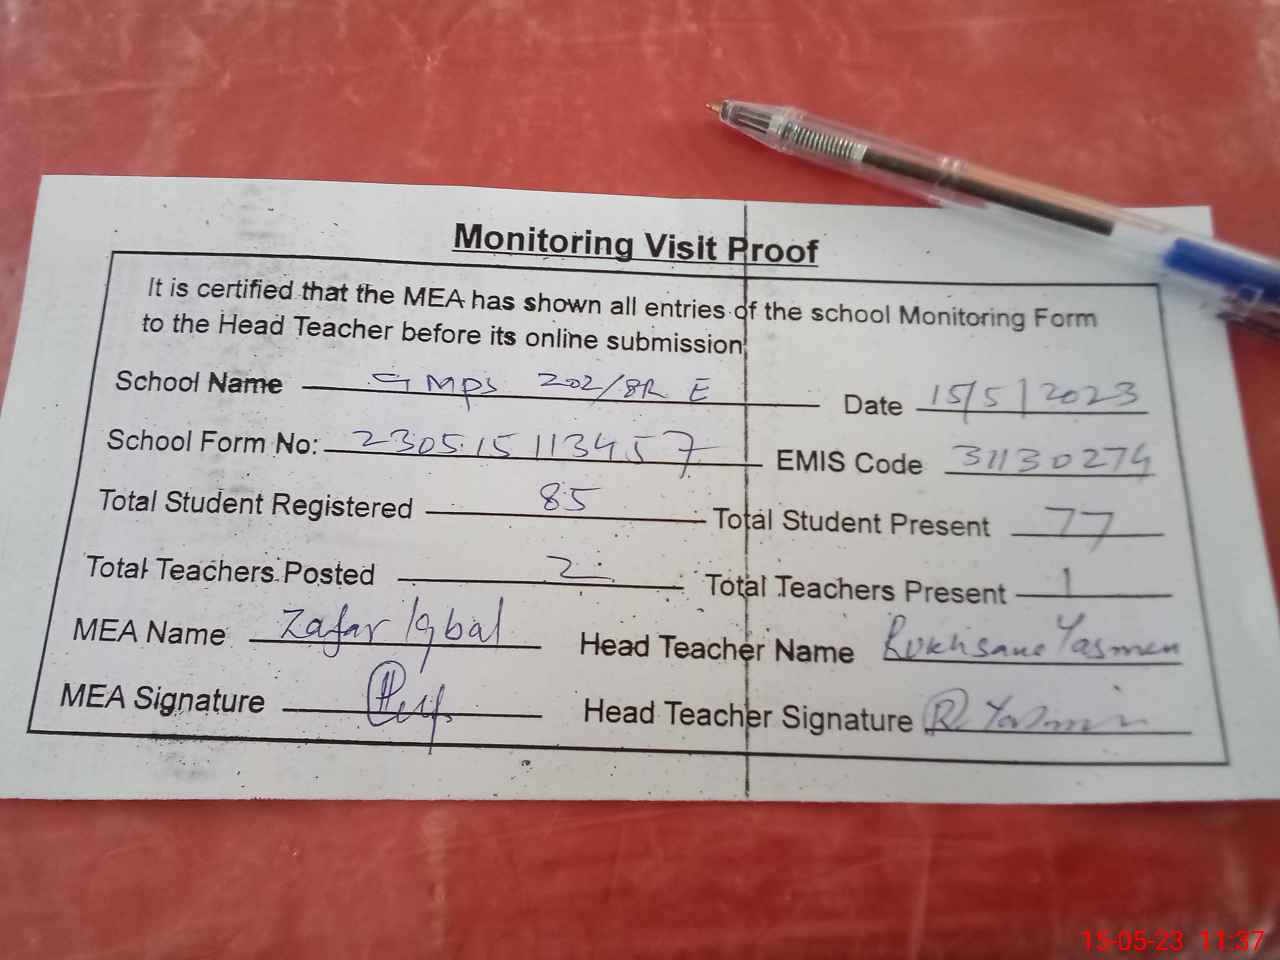 Monitoring Visit Proof
It is certified that the MEA has shown all entries of the school Monitoring Form
to the Head Teacher before its online submission
School Name GMPS 202/8R E Date 15/5/2023
School Form No: 230515113457 EMIS Code 31130274
Total Student Registered 85 Total Student Present 77
Total Teachers Posted 2 Total Teachers Present 1
MEA Name Zafar Iqbal Head Teacher Name Rukhsane Yasmen
MEA Signature Head Teacher Signature R Yasmin
15-05-23 11:37